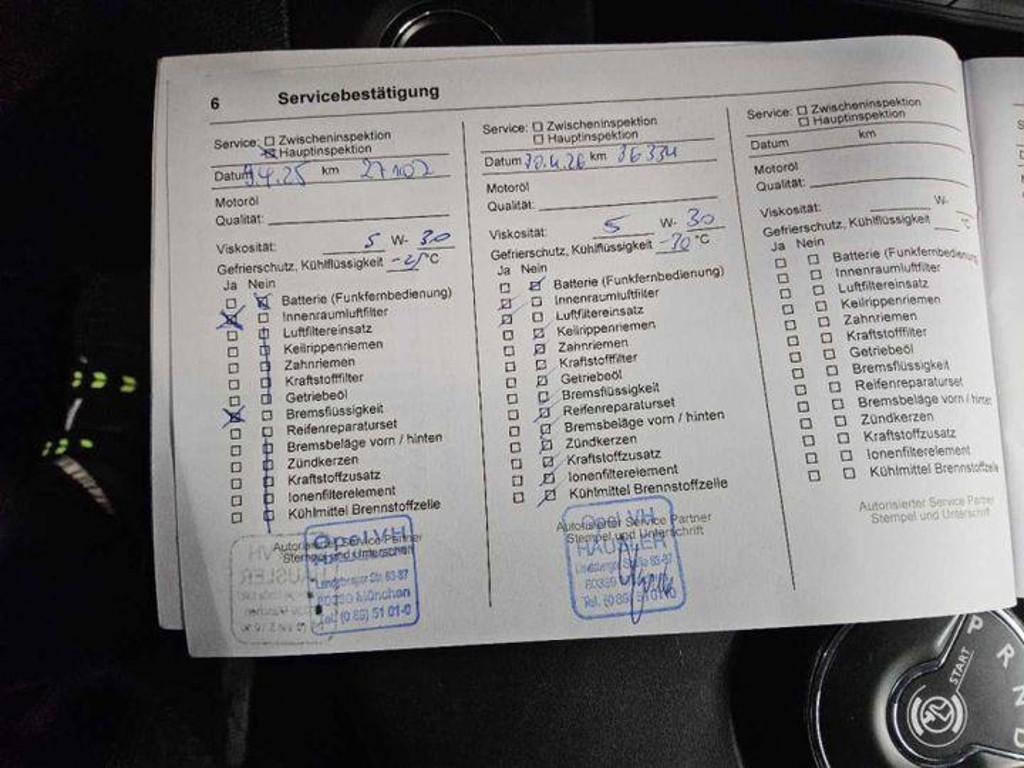 6 Servicebestätigung
Service: Zwischeninspektion
Hauptinspektion
Datum 9.4.25 km 27102
Motoröl
Qualität:
Viskosität: 5 W- 30
Gefrierschutz, Kühlflüssigkeit -25 °C
Ja Nein
Batterie (Funkfernbedienung)
Innenraumluftfilter
Luftfiltereinsatz
Keilrippenriemen
Zahnriemen
Kraftstofffilter
Getriebeöl
Bremsflüssigkeit
Reifenreparaturset
Bremsbeläge vorn / hinten
Zündkerzen
Kraftstoffzusatz
Ionenfilterelement
Kühlmittel Brennstoffzelle
Autorisierter Service Partner
Stempel und Unterschrift
Opel VH
HÄUSLER
Landsberger Str. 83-87
80339 München
Tel. (0 89) 51 01-0
Service: Zwischeninspektion
Hauptinspektion
Datum km 36334
Motoröl
Qualität:
Viskosität: 5 W- 30
Gefrierschutz, Kühlflüssigkeit -30 °C
Ja Nein
Batterie (Funkfernbedienung)
Innenraumluftfilter
Luftfiltereinsatz
Keilrippenriemen
Zahnriemen
Kraftstofffilter
Getriebeöl
Bremsflüssigkeit
Reifenreparaturset
Bremsbeläge vorn / hinten
Zündkerzen
Kraftstoffzusatz
Ionenfilterelement
Kühlmittel Brennstoffzelle
Autorisierter Service Partner
Stempel und Unterschrift
Opel VH
HÄUSLER
Landsberger Straße 83-87
80339
Tel. (0 89) 51 01-0
Service: Zwischeninspektion
Hauptinspektion
Datum km
Motoröl
Qualität:
Viskosität: W-
Gefrierschutz, Kühlflüssigkeit °C
Ja Nein
Batterie (Funkfernbedienung
Innenraumluftfilter
Luftfiltereinsatz
Keilrippenriemen
Zahnriemen
Kraftstofffilter
Getriebeöl
Bremsflüssigkeit
Reifenreparaturset
Bremsbeläge vorn / hinten
Zündkerzen
Kraftstoffzusatz
Ionenfilterelement
Kühlmittel Brennstoffzelle
Autorisierter Service Partner
Stempel und Unterschrift
P
R
N
D
START